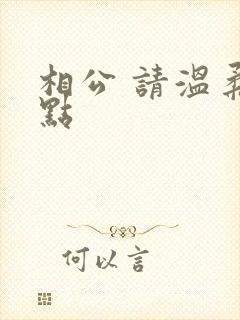 相公 請溫柔
點
何以言